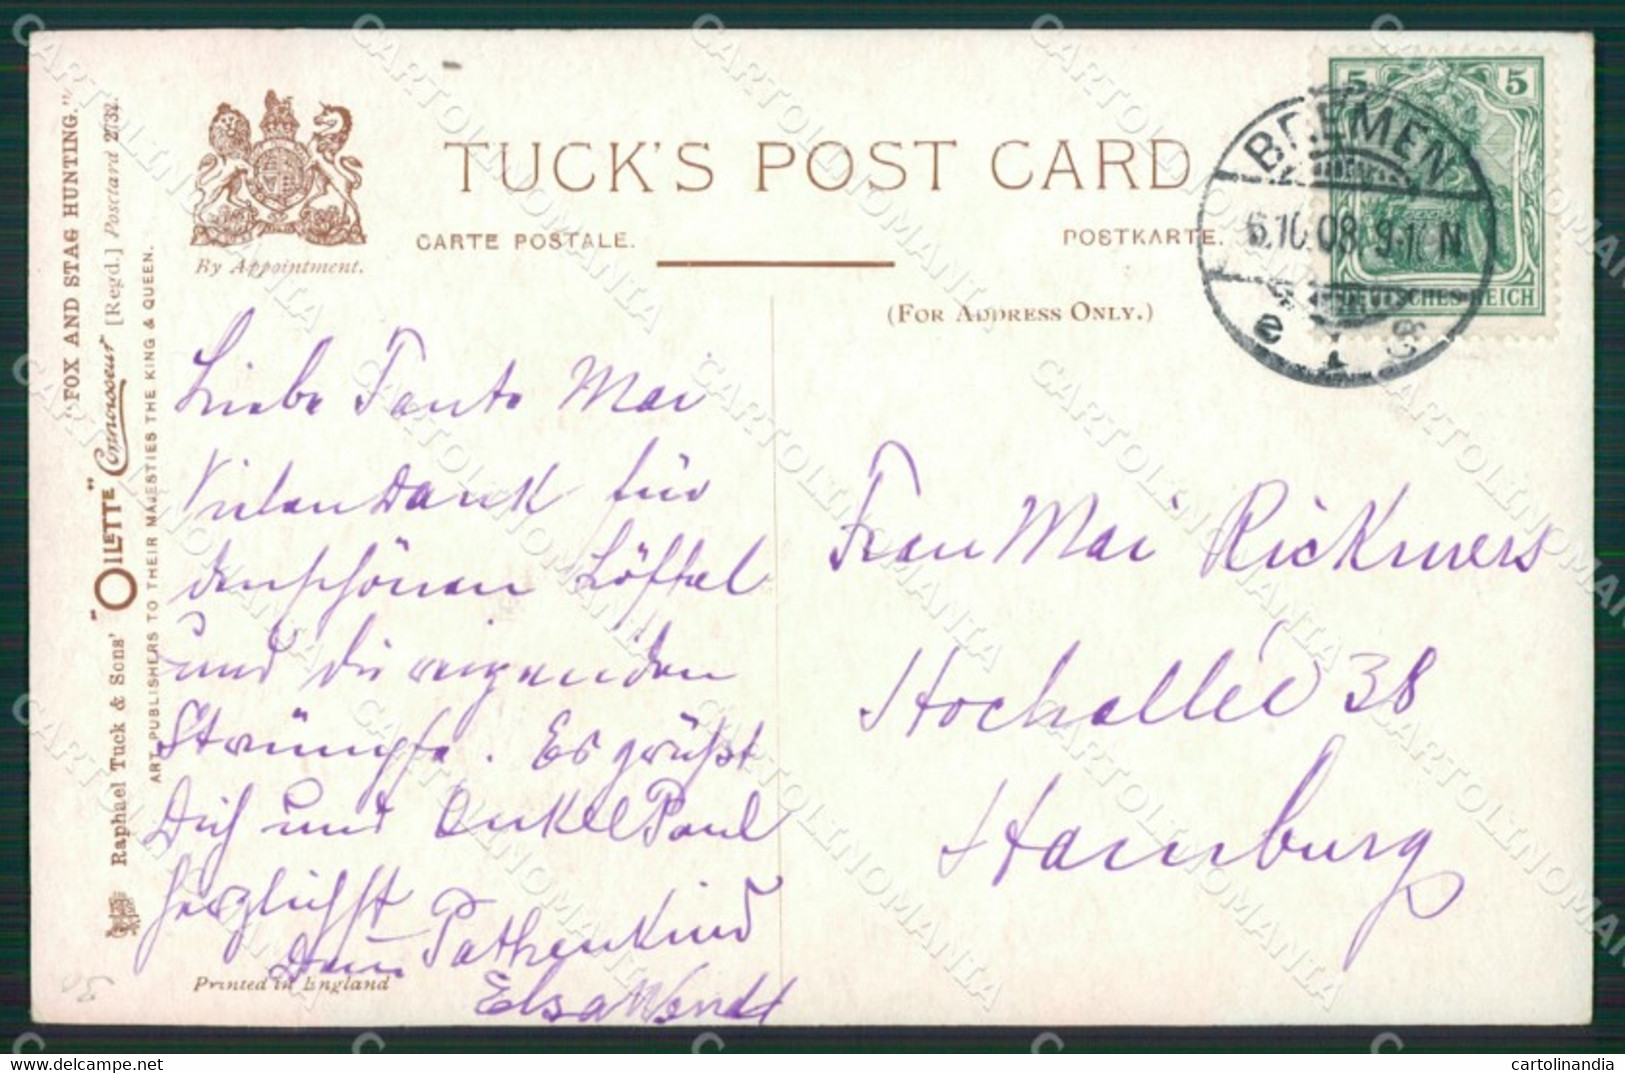 "FOX AND STAG HUNTING."
Raphael Tuck & Sons' "OILETTE" Connoisseur [Regd.] Postcard 2732.
ART PUBLISHERS TO THEIR MAJESTIES THE KING & QUEEN.
By Appointment.
TUCK'S POST CARD
CARTE POSTALE.
POSTKARTE.
(FOR ADDRESS ONLY.)
5 5
DEUTSCHES REICH
BREMEN
6.10.08. 9-10 N
Liebe Tante Mai
Vielen Dank für
den schönen Löffel
und die reizenden
Strümpfe. Es grüßt
Dich und Onkel Paul
herzlichst
Dein Pathenkind
Elsa Wendt
Frau Mai Rickmers
Hochallée 38
Hamburg
Printed in England
30
CARTOLINOMANIA
delcampe.net
cartolinandia